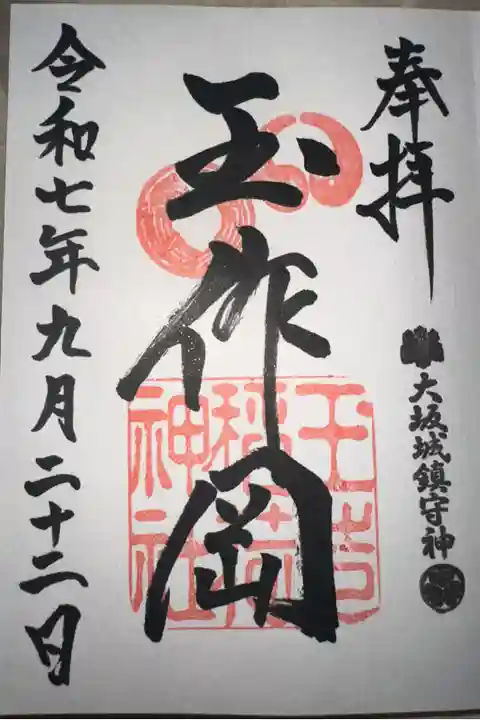 奉拝
大坂城鎮守神
玉作岡
玉造
稲荷
神社
令和七年九月二十二日